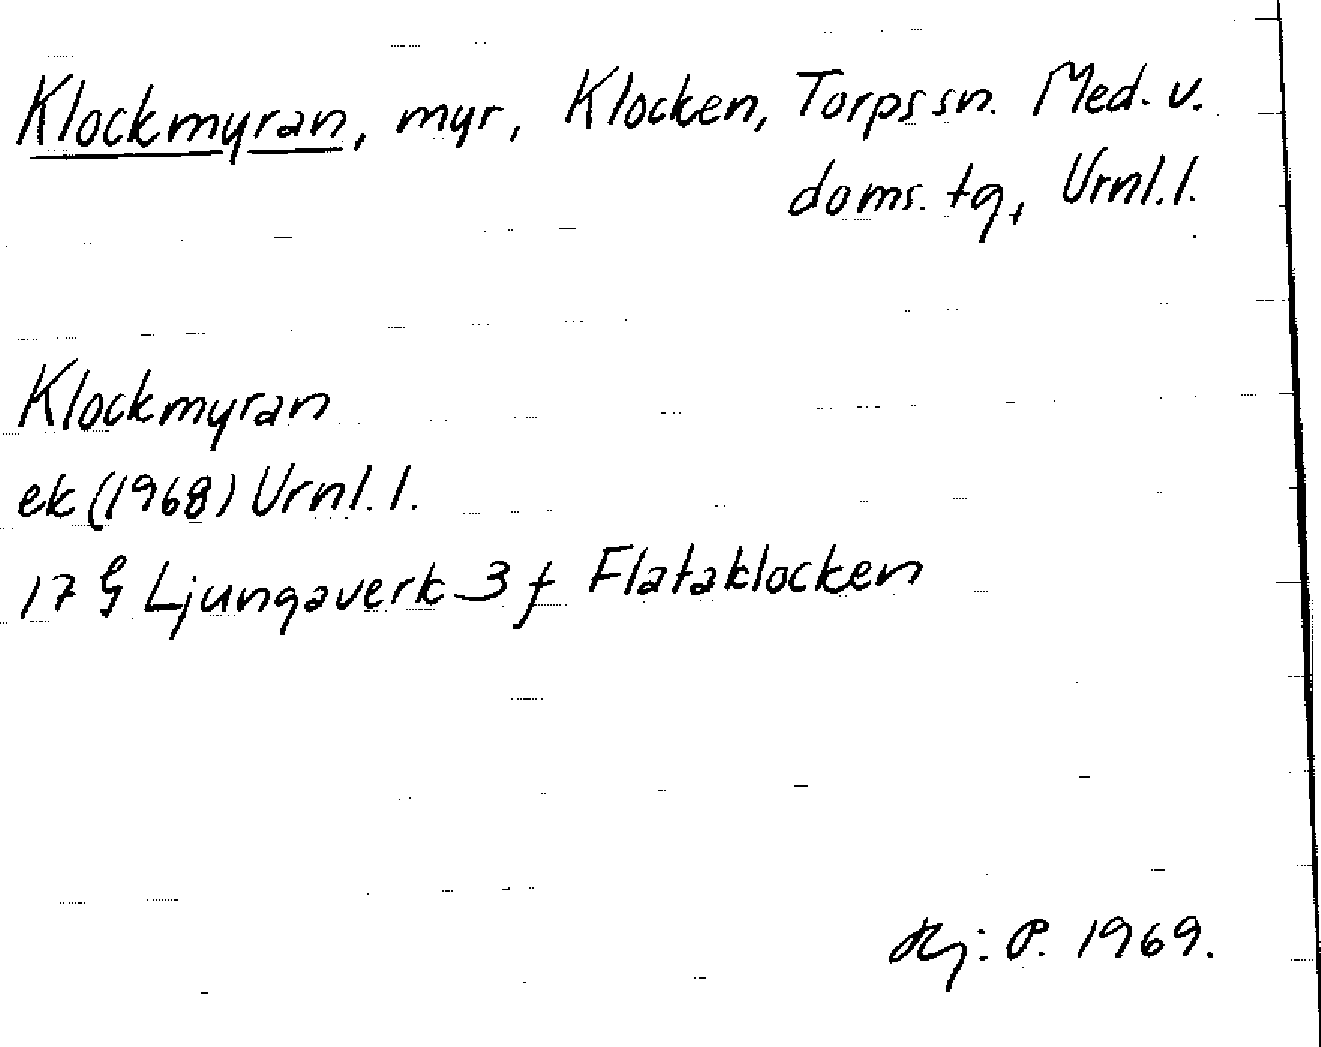 Klockmyran, myr, Klocken, Torps sn. Med. v.
doms. tg, Urnl. l.
Klockmyran
ek (1968) Urnl. l.
17 G Ljungaverk 3 f Flataklocken
P. 1969.